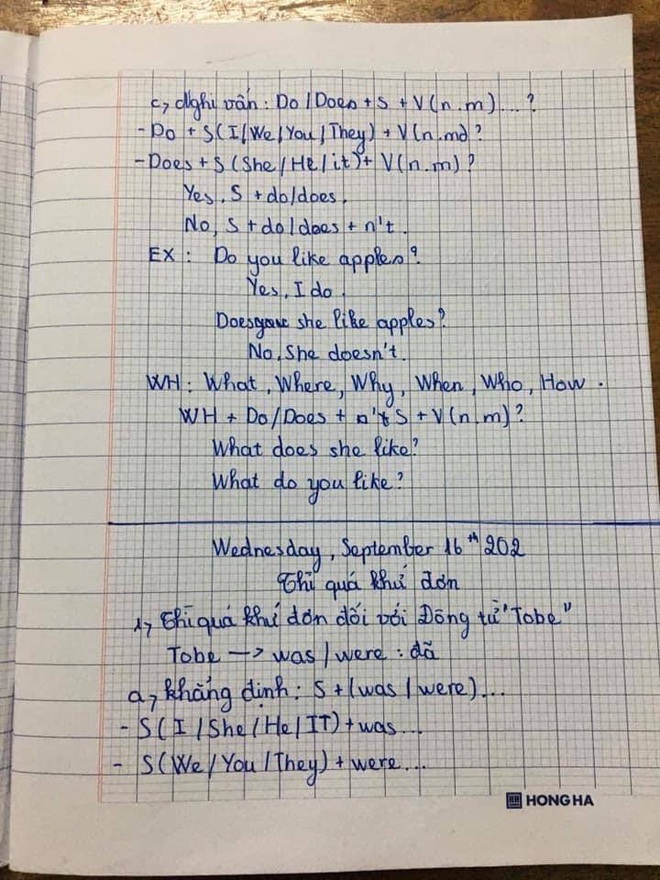 c, Nghi vấn: Do/Does + S + V(n.m)...?
- Do + S(I/We/You/They) + V(n.m)?
- Does + S (She/He/it) + V(n.m)?
Yes, S + do/does.
No, S + do/does + n't.
EX: Do you like apples?
Yes, I do.
Does she like apples?
No, She doesn't.
WH: What, Where, Why, When, Who, How.
WH + Do/Does + S + V(n.m)?
What does she like?
What do you like?
Wednesday, September 16th 202
Thì quá khứ đơn
1, Thì quá khứ đơn đối với Động từ "Tobe"
Tobe → was/were: đã
a, khẳng định: S + (was/were)...
- S(I/She/He/IT) + was...
- S(We/You/They) + were...
HONG HA